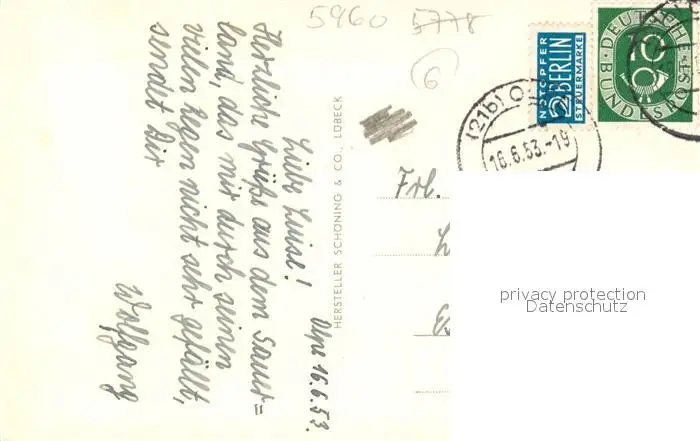 5960 5778
6
NOTOPFER
2 BERLIN
STEUERMARKE
DEUTSCHE
BUNDESPOST
10
(21b) O
16.6.53.-19
Olpe 16.6.53.
Liebe Luise!
Herzliche Grüße aus dem Sauer=
land, das mir durch seinen
vielen Regen nicht sehr gefällt,
sendet Dir
Wolfgang
HERSTELLER SCHÖNING & CO., LÜBECK
Frl.
privacy protection
Datenschutz